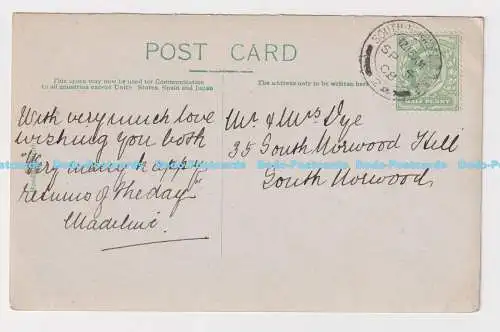 POST CARD
This space may now be used for Communication
to all countries except United States, Spain and Japan
The address only to be written here
HALF PENNY
With very much love
wishing you both
"Very many happy
returns of the day"
Madeline.
Mr & Mrs Dye
35 South Norwood Hill
South Norwood